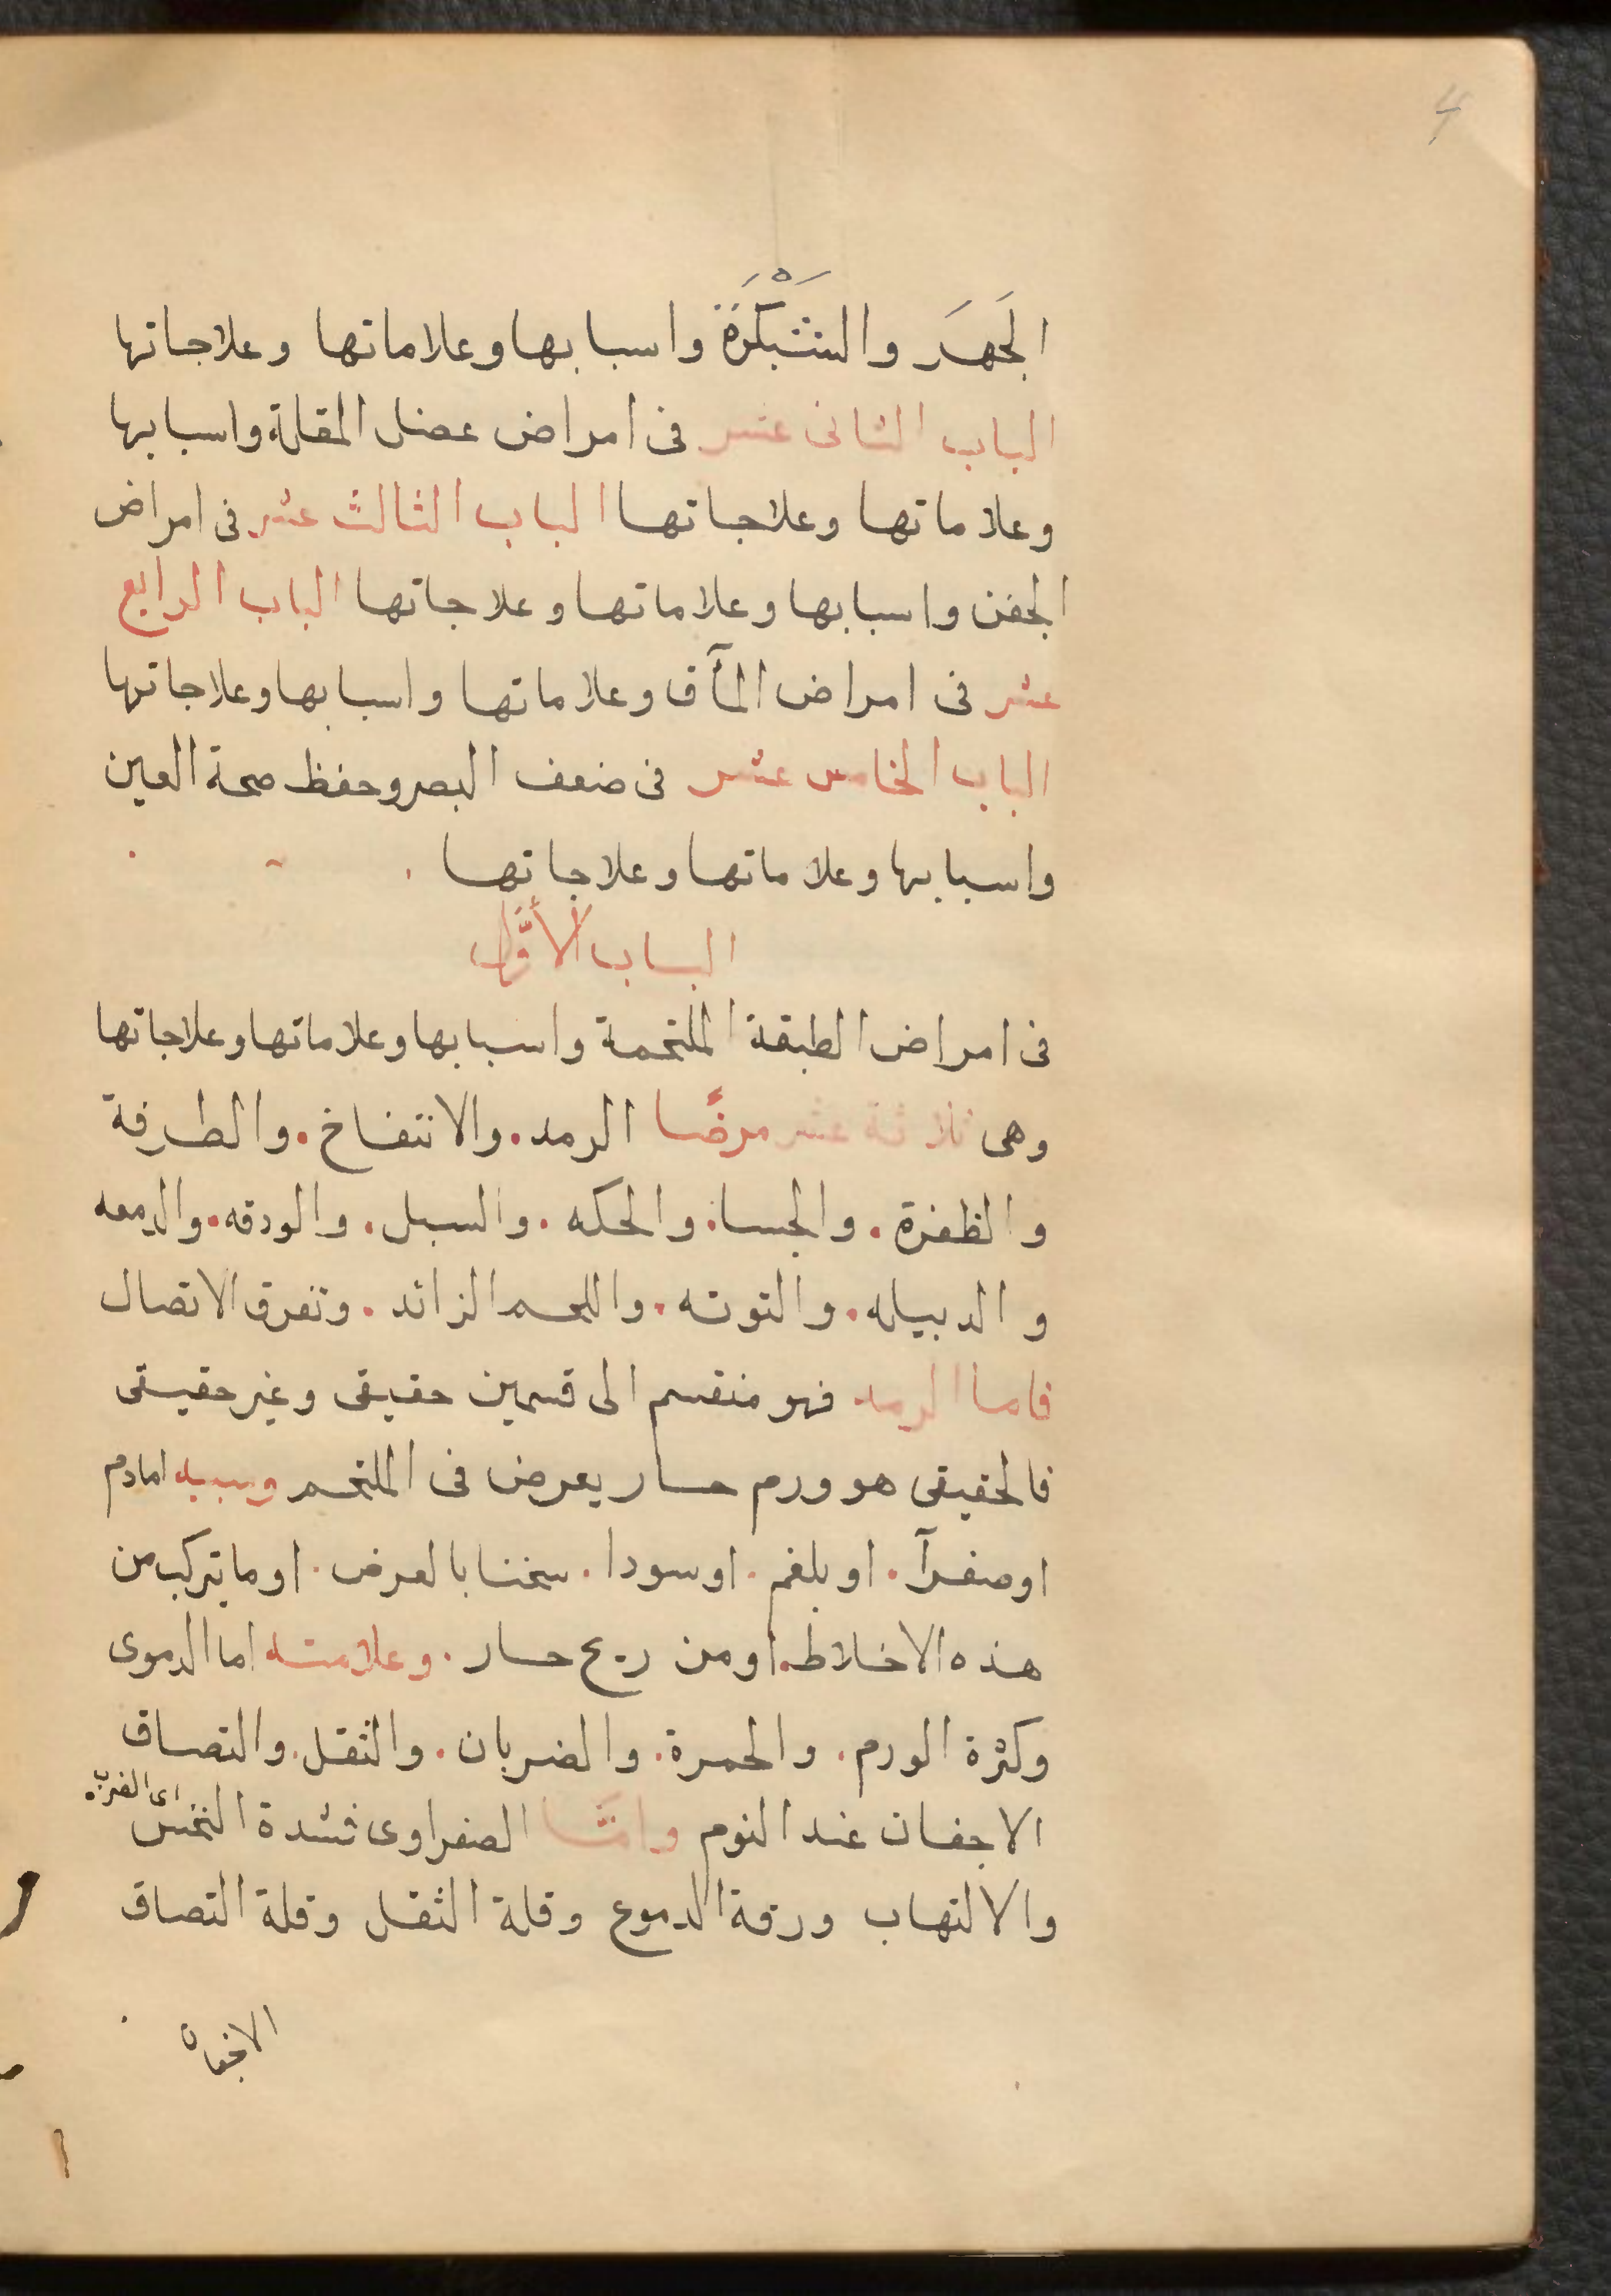 4
الجَهَر والشَبْكَرَة واسبابها وعلاماتها وعلاجاتها
الباب الثانى عشر فى امراض عضل المقلة واسبابها
وعلاماتها وعلاجاتها الباب الثالث عشر فى امراض
الجفن واسبابها وعلاماتها وعلاجاتها الباب الرابع
عشر فى امراض المآق وعلاماتها واسبابها وعلاجاتها
الباب الخامس عشر فى ضعف البصر وحفظ صحة العين
واسبابها وعلاماتها وعلاجاتها
الباب الأوَّل
فى امراض الطبقة الملتحمة واسبابها وعلاماتها وعلاجاتها
وهى ثلاثة عشر مرضًا الرمد. والانتفاخ. والطرفة
والظفرة. والجسا. والحكه. والسبل. والودقه. والدمعه
والدبيله. والتوته. واللحم الزائد. وتفرق الاتصال
فاما الرمد فهو منقسم الى قسمين حقيقى وغير حقيقى
فالحقيقى هو ورم حار يعرض فى الملتحم وسببه اما دم
او صفرآ. او بلغم. او سودا. سخنا بالعرض. او ما يتركب من
هذه الاخلاط. او من ريح حار. وعلامته اما الدموى
وكثرة الورم. والحمرة. والضربان. والثقل. والتصاق
الاجفان عند النوم وامَّا الصفراوى فشدة النخس
والالتهاب ورقة الدموع وقلة الثقل وقلة التصاق
الاجفان